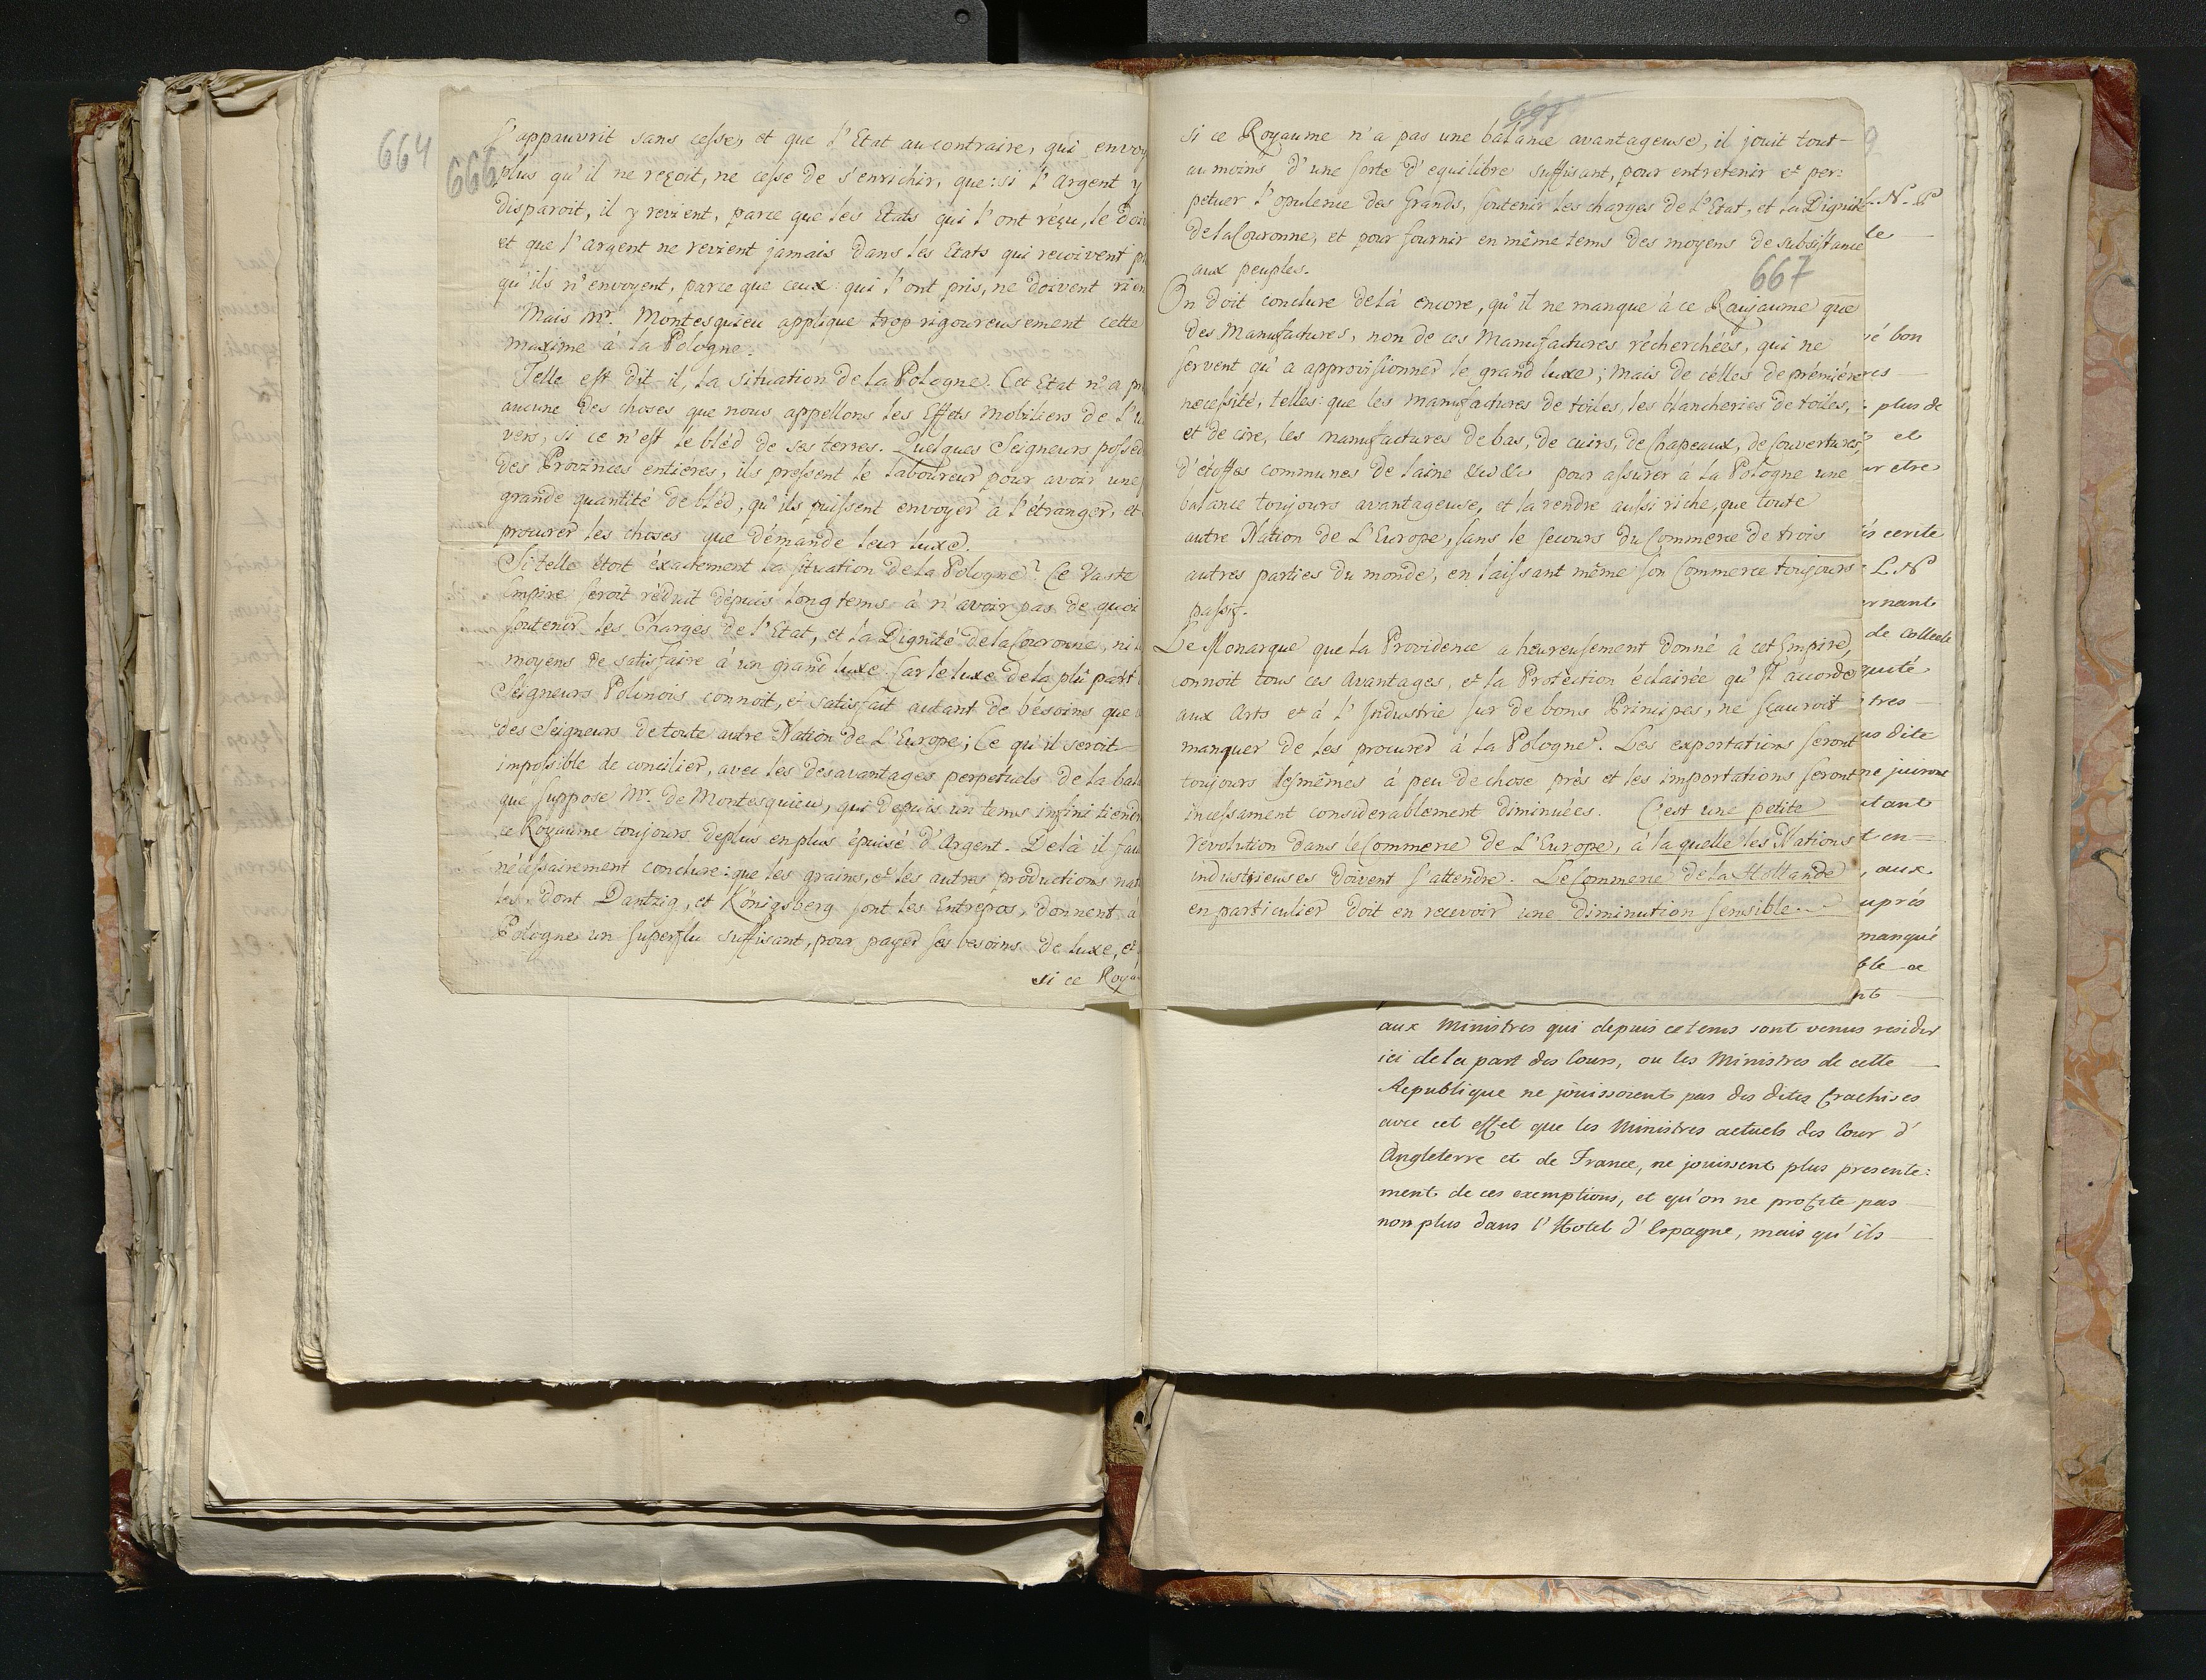 664
666
s'appauvrit sans cesse, et que l'Etat au contraire, qui envoy
plus qu'il ne reçoit, ne cesse de s'enrichir, que: si l'Argent y
disparoit, il y revient, parce que les Etats qui l'ont réçu, le doiv
et que l'Argent ne revient jamais dans les Etats qui recoivent pl
qu'ils n'envoyent, parce que ceux: qui l'ont pris, ne doivent rien
Mais Mr. Montesquieu applique trop rigoureusement cette
maxime à la Pologne.
Telle est dit-il, la situation de la Pologne. Cet Etat n'a pr
aucune des choses que nous appellons les Effets mobiliers de l'u
vers, si ce n'est le bléd de ses terres. Quelques Seigneurs possed
des Provinces entiéres, ils pressent le laboureur pour avoir une
grande quantité de bléd, qu'ils puissent envoyer à l'étranger, et
procurer les choses que démande leur luxe.
Si telle étoit éxactement la situation de la Pologne? Ce Vaste
Empire seroit réduit dépuis longtems à n'avoir pas de quoi
soutenir les Charges de l'Etat, et la Dignité de la Couronne, ni
moyens de satisfaire à un grand luxe. Car le luxe de la plû part
Seigneurs Polonois connoit, et satisfait autant de bésoins que
des Seigneurs de toute autre Nation de L'Europe; Ce qu'il seroit
impossible de concilier, avec les desavantages perpetuels de la bala
que suppose Mr. de Montesquieu, qui depuis un tems infini tiendr
ce Royaume toujours deplus enplus épuisé d'Argent. Delà il fau
nécéssairement conclure: que les grains, et les autres productions nat
les dont Dantzig, et Königsberg sont les Entrepos, donnent à
Pologne un superflu suffisant, pour payer ses besoins de luxe, et
si ce Roya
667
si ce Royaume n'a pas une balance avantageuse, il jouit tout-
au moins d'une sorte d'equilibre suffisant, pour entretenir et per:
petuer l'opulence des Grands, soutenir les charges de l'Etat, et la Dignité
de la Couronne, et pour fournir en même tems des moyens de subsistance
aux peuples.
667
On doit conclure delà encore, qu'il ne manque à ce Royaume que
des Manufactures, non de ces Manufactures récherchées, qui ne
servent qu'a approvisionner le grand luxe; mais de celles de prémiére
necessité, telles: que les manufactures de toiles, les blancheries de toiles,
et de cire, les manufactures de bas, de cuirs, de Chapeaux, de Couvertures,
d'étoffes communes de laine &c &c pour assurer à la Pologne une
balance toujours avantageuse, et la rendre aussi riche, que toute
autre Nation de L'Europe, sans le secours du Commerce de trois
autres parties du monde, en laissant même son Commerce toujours
passif.
Le Monarque que la Providence a heureusement donné à cet Empire,
connoit tous ces avantages, et la Protection éclairée qu'Il accorde
aux Arts et à l'Industrie sur de bons Principes, ne sçauroit
manquer de les procurer à la Pologne. Les exportations seront
toujours les mêmes à peu de chose près et les importations seront
incessament considerablement diminuées. C'est une petite
révolution dans le Commerce de L'Europe, à la quelle les Nations
industrieuses doivent s'attendre. Le Commerce de la Hollande
en particulier doit en recevoir une diminution sensible.
L. N. P
le
bon
plus de
et
ur etre
cerite
L. N
ernant
de collecte
tres
us dite
ne juirons
utant
t en
, aux
uprés
manqué
ble a
nt
aux Ministres qui depuis ce tems sont venus resider
ici de la part des Cours, ou les Ministres de cette
Republique ne jouissoient pas des dites frachises
avec cet effet que les Ministres actuels des Cour d'
Angleterre et de France, ne jouissent plus presente:
ment de ces exemptions, et qu'on ne profite pas
non plus dans l'Hotel d'Espagne, mais qu'ils